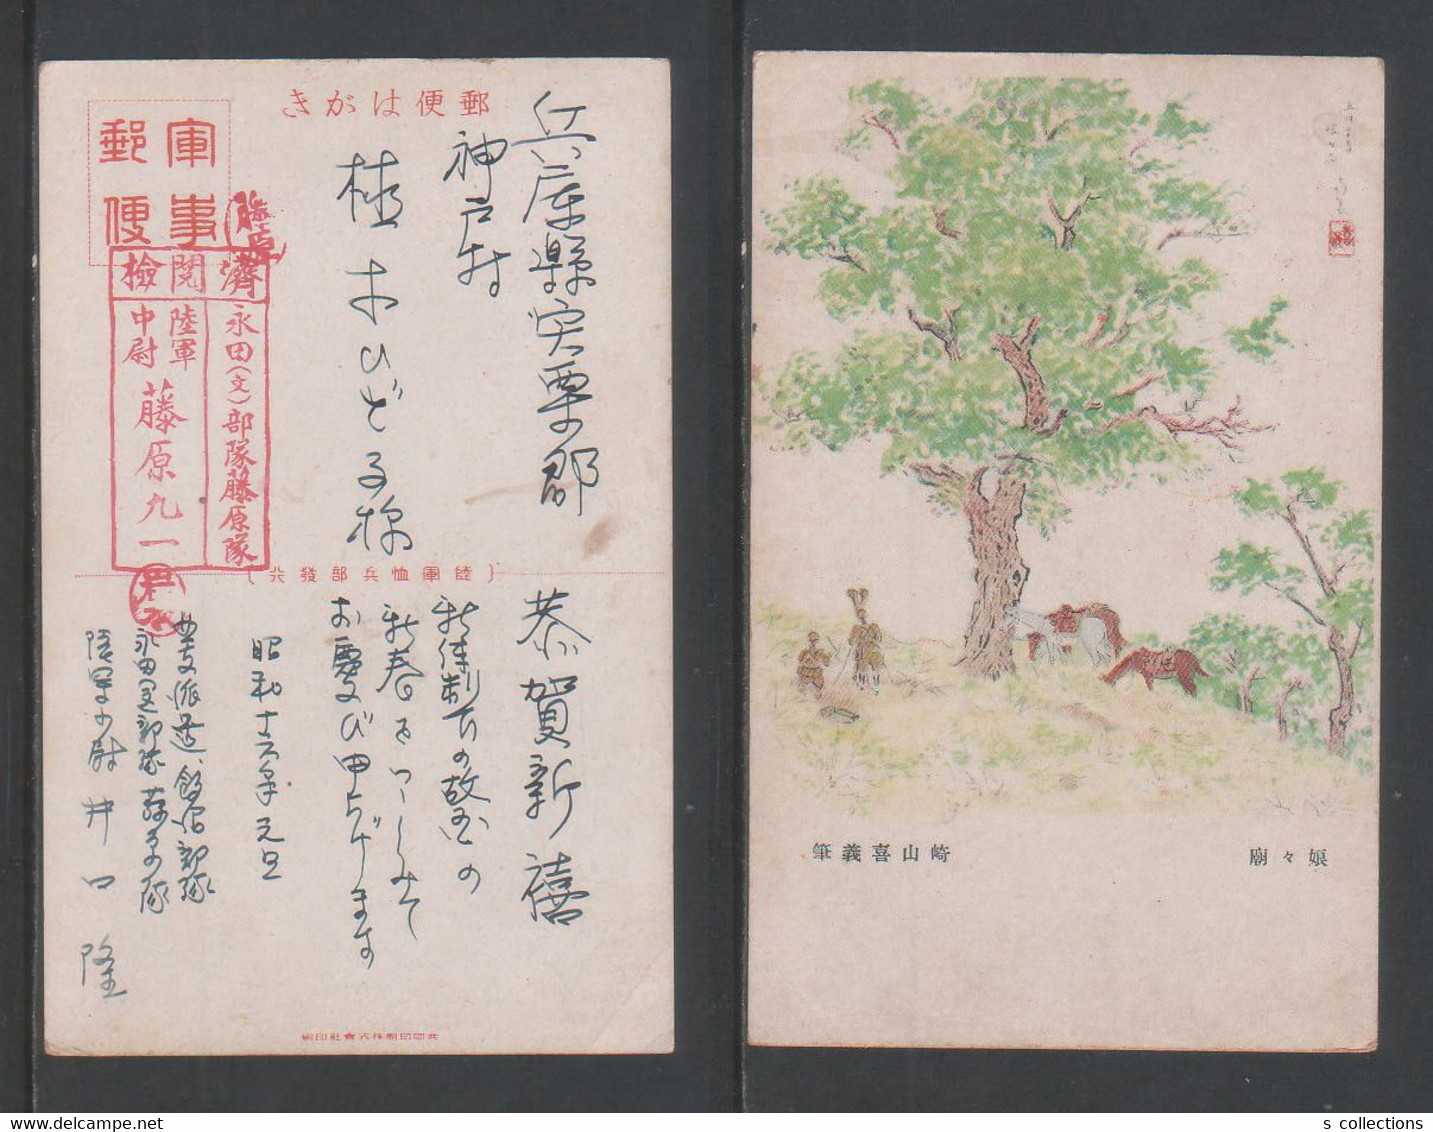 郵便はがき
軍事
郵便
檢閱濟
永田(文)部隊藤原隊
陸軍
中尉
藤原九一
兵庫縣宍粟郡
神戸村
植木ひざ子様
{陸軍恤兵部發行}
恭賀新禧
新体制下の故国の
新春をつゝしみて
お慶び申上げます
昭和十六年元旦
中支派遣、飯沼部隊
永田(文)部隊藤原隊
陸軍少尉 井口 隆
共同印刷株式會社印刷
娘々廟
崎山喜義筆
s collections